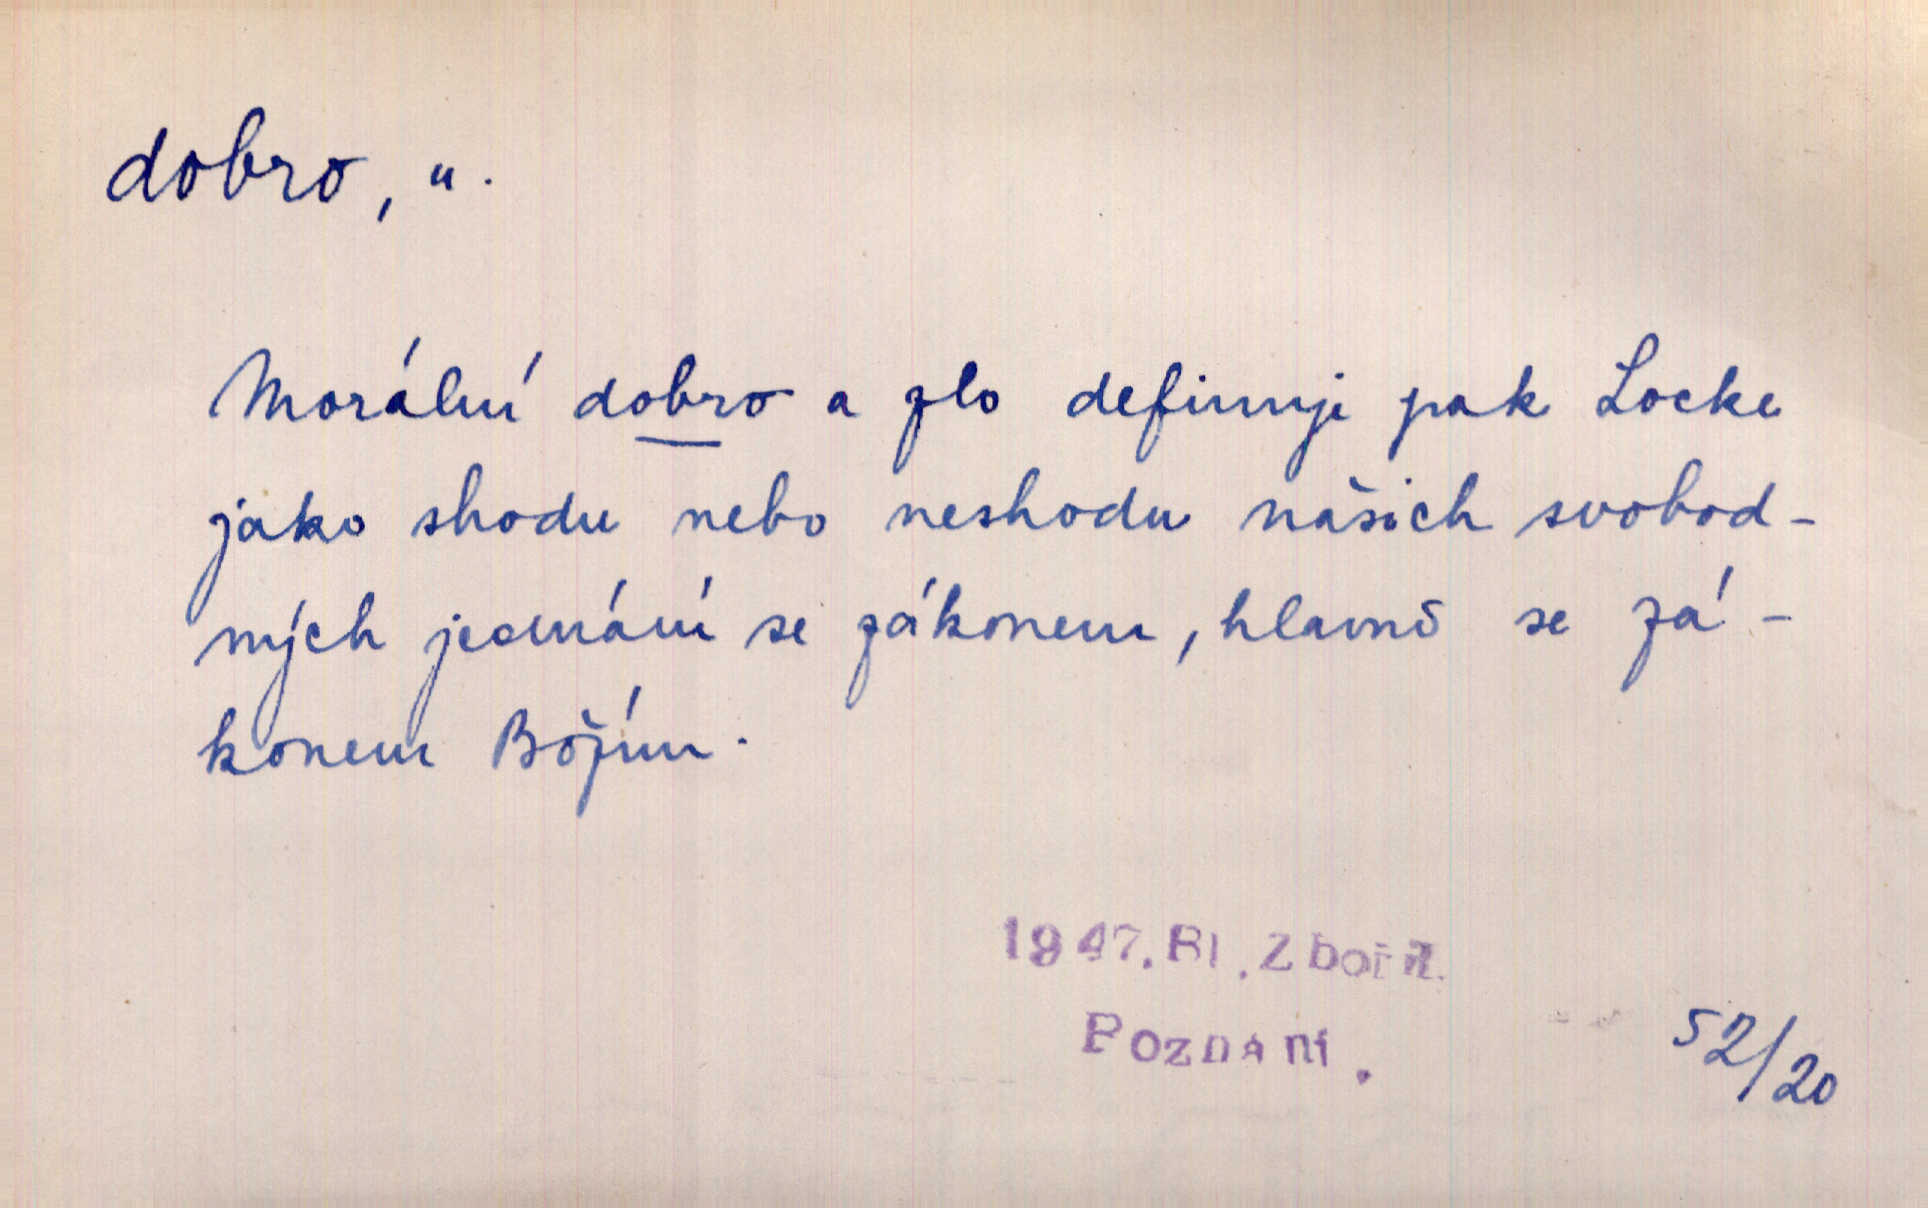 dobro, n.
Morální dobro a zlo definuje pak Locke
jako shodu nebo neshodu našich svobod-
ných jednání se zákonem, hlavně se zá-
konem Božím.
1947.Bl.Zbořil.
Poznání.
52/20